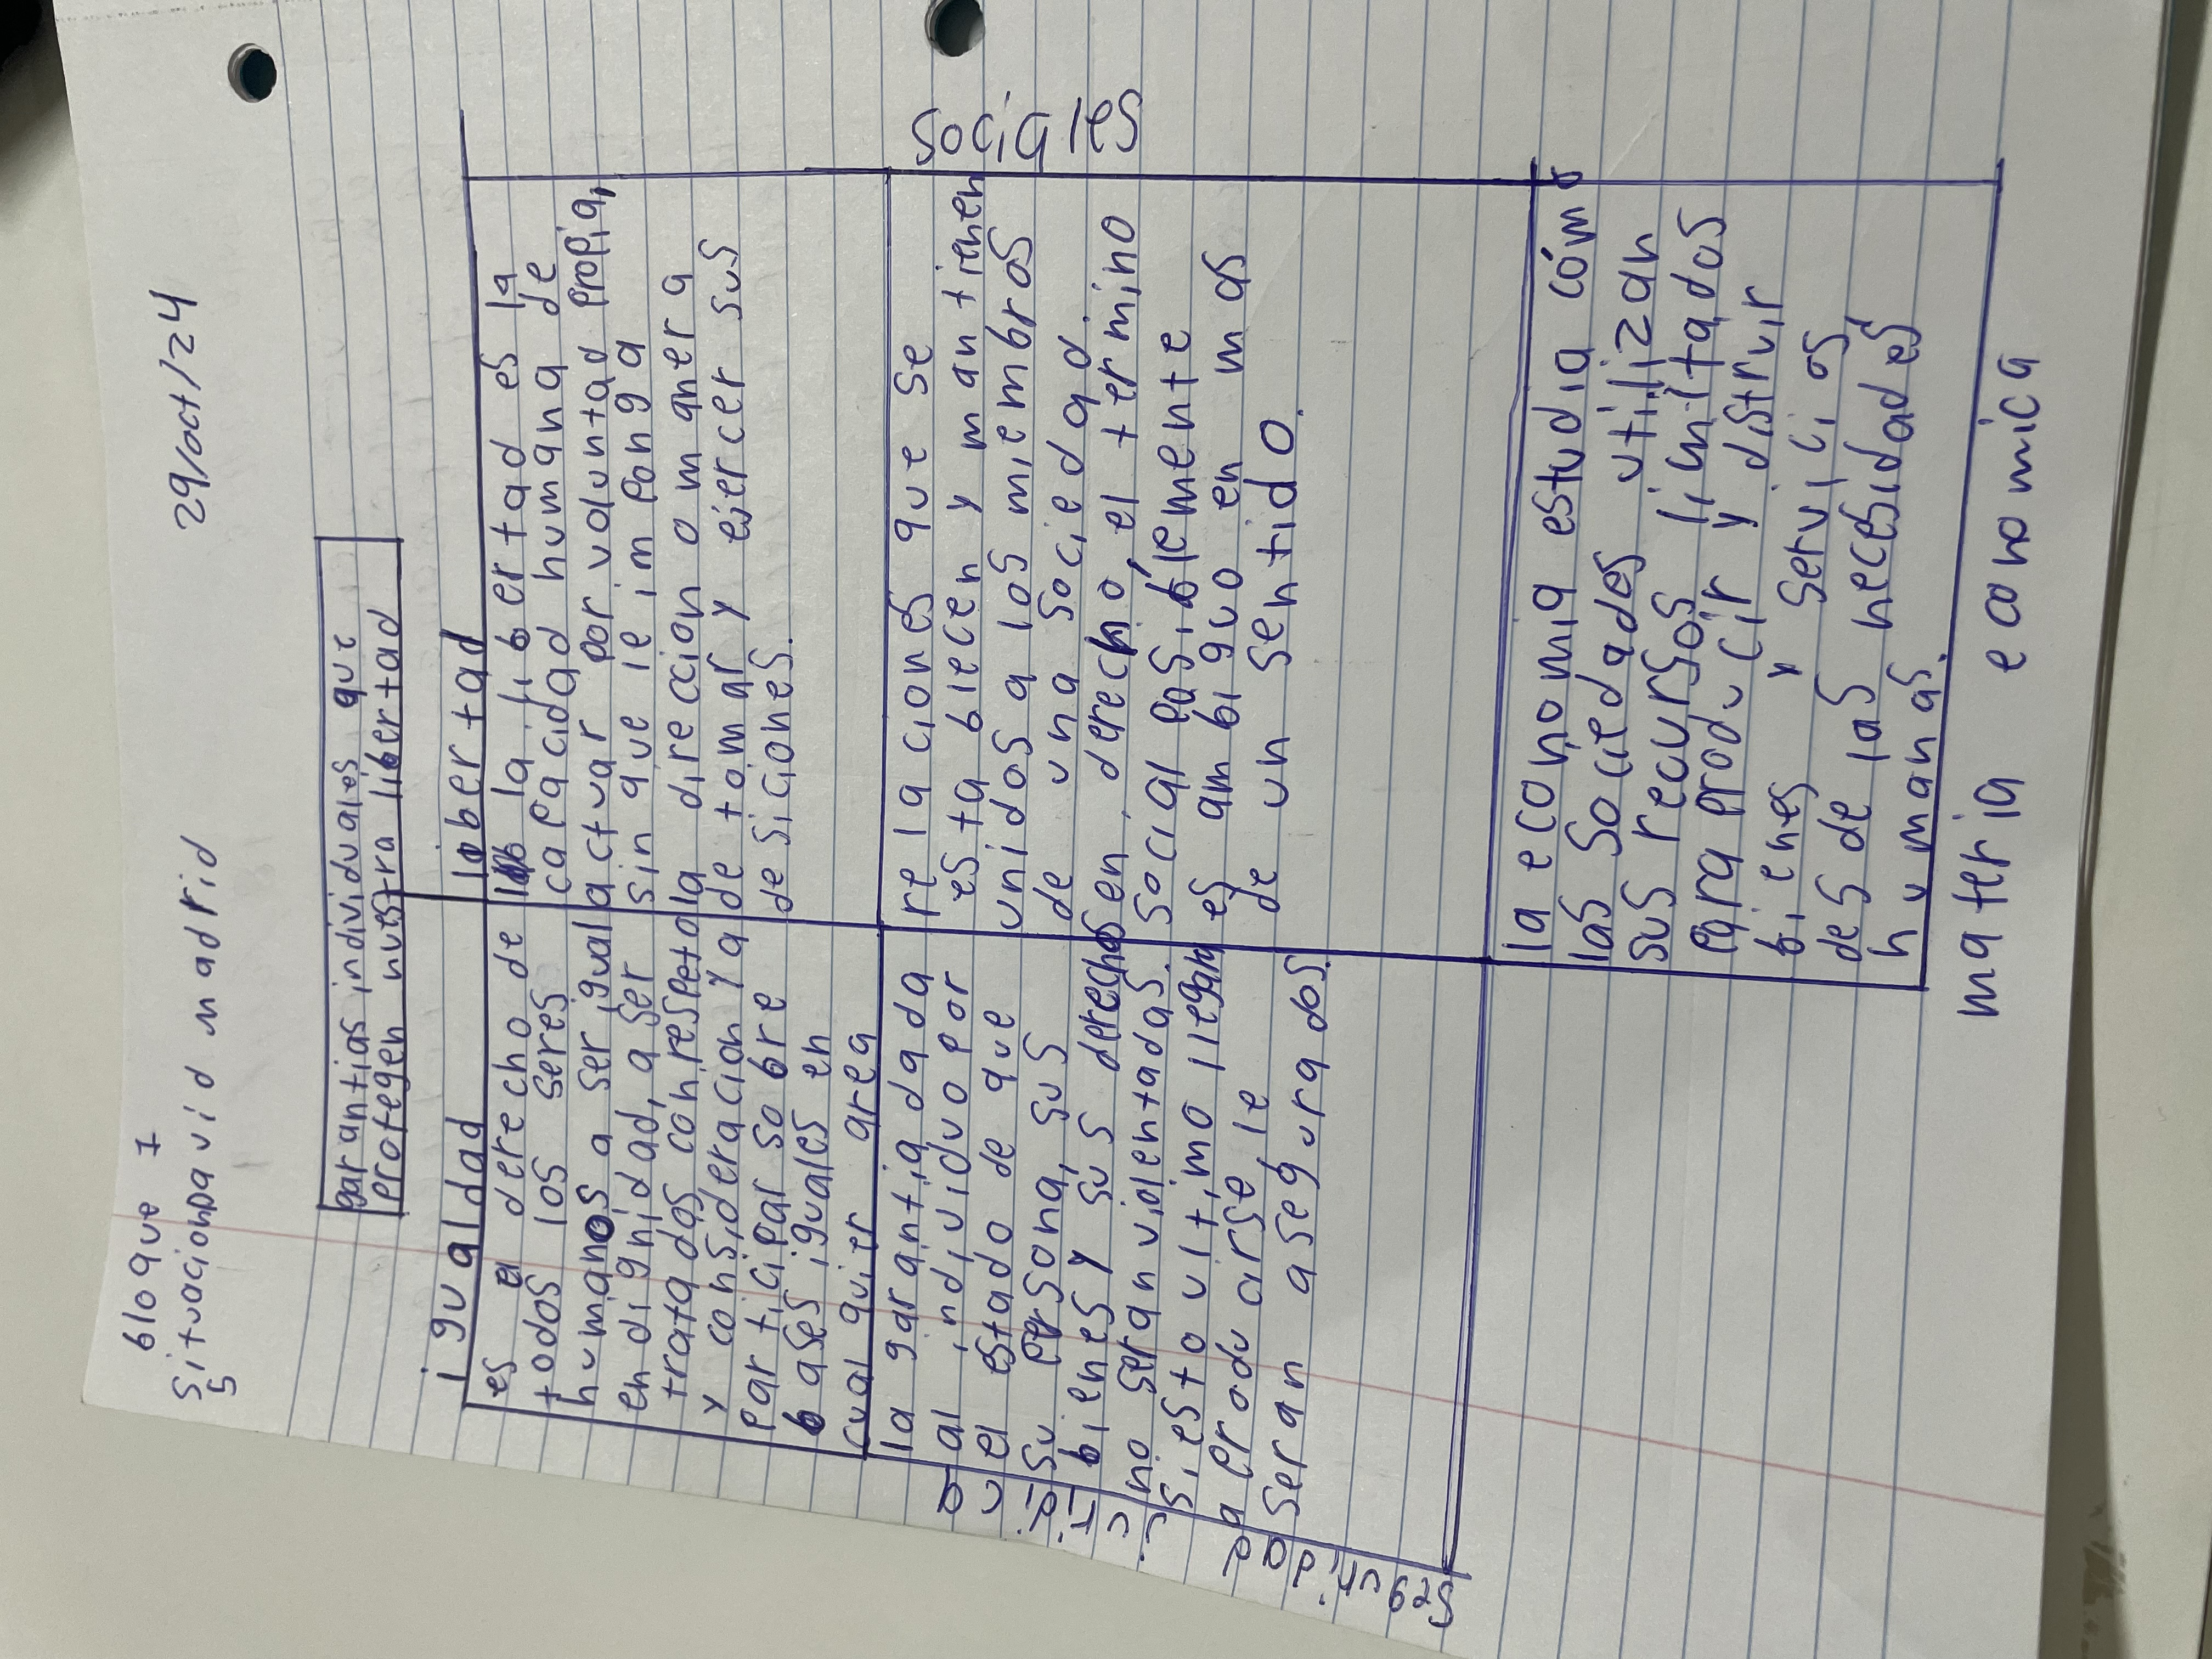 bloque 1
Situacion david madrid 29/oct/24
5
garantias individuales que
protegen nuestra libertad
igualdad
es el derecho de
todos los seres
humanos a ser igual
en dignidad, a ser
tratados con respeto
y consideracion y a
participar sobre
bases iguales en
cualquier area
libertad
la libertad es la
capacidad humana de
actuar por voluntad propia,
sin que le imponga
la direccion o manera
de tomar y ejercer sus
desiciones.
Seguridad
juridica
la garantia dada
al individuo por
el estado de que
su persona, sus
bienes y sus derechos
no seran violentadas.
si esto ultimo llegara
a producirse le
seran asegurados.
relaciones que se
establecen y mantienen
unidos a los miembros
de una sociedad.
en derecho, el termino
social posiblemente
es ambiguo en mas
de un sentido.
sociales
la economia estudia cómo
las sociedades utilizan
sus recursos limitados
para producir y distruir
bienes y servicios
des de las necesidades
humanas.
materia economica